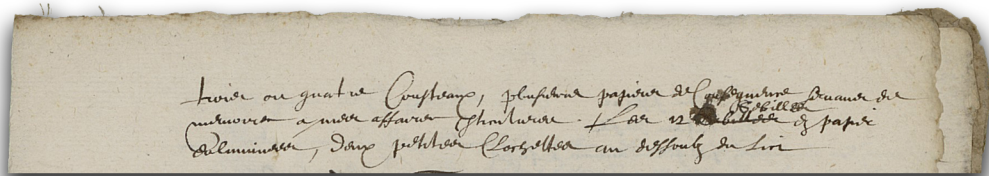 trois ou quatre Cousteaux, plusieurs papiers de Consequence servans de
memoires a mes affaires . Les 12 Sebilles
Sebilles & papier
denluminures, deux petittes Clochettes au dessoulz du lict